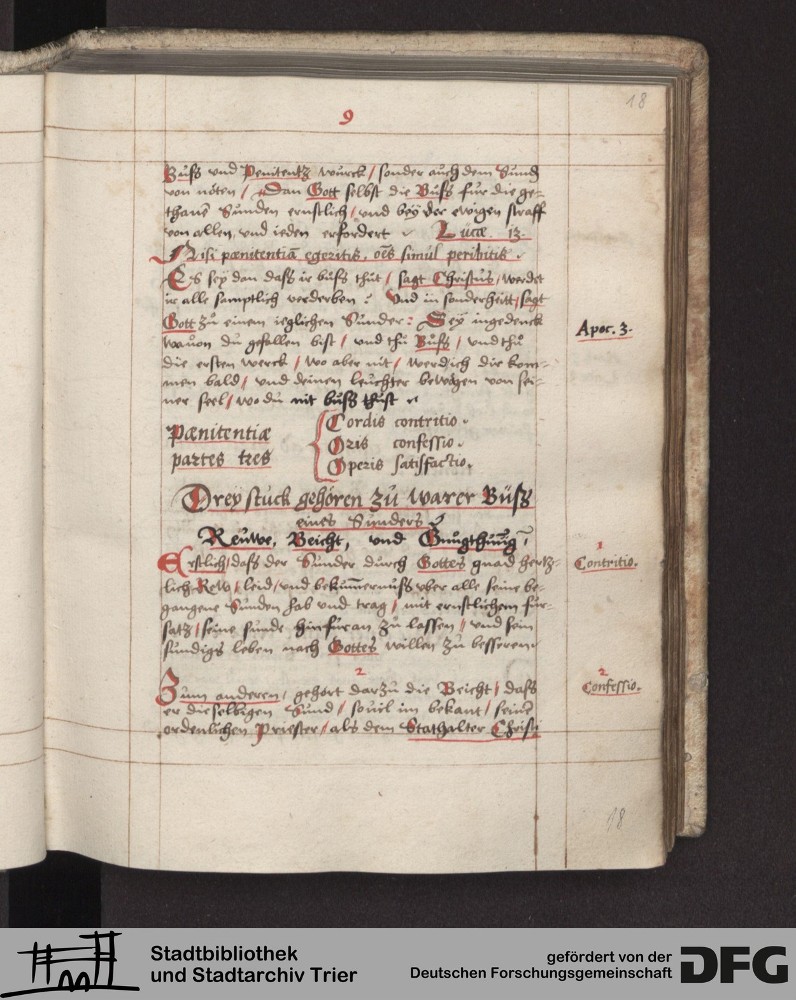 18
9
Buß und Penitentz wurck / sonder auch dem Sund
von nöten / Dan Gott selbst die Buß fur die ge=
thane Sunden ernstlich / und beÿ der ewigen straff
von allen, und ieden erfordert Lucæ. 13.
Nisi pænitentiã egeritis, oẽs simul peribitis.
Es seÿ dan daß ir buß thut / sagt Christus, werdet
ir alle samptlich verderben? Und in sonderheitt, sagt
Gott zu einem ieglichen Sunder: Seÿ ingedenck
wauon du gefallen bist / und thu Buß / und thu
die ersten werck / wo aber nit / werd ich dir kom=
men bald / und deinen leuchter bewegen von sei=
ner stel / wo du nit buß thust
Apoc. 3.
Pænitentiæ
partes tres
Cordis contritio.
Oris confessio.
Operis satisfactio.
Dreÿ stuck gehören zu warer Büß
eines Sunders
Reuwe, Beicht, und Gnugthuũg
Erstlich / daß der Sunder durch Gottes gnad hertz=
liche Rew / leid / und bekum̃ernuß uber alle seine be=
gangene Sunden hab und trag / mit ernstlichem fur=
satz / seine sunde hinfuran zu lassen / und sein
sundigs leben nach Gottes willen zu besseren
1
Contritio.
2
Zum anderen, gehort darzu die Beicht / daß
er dieselbigen Sund / souil im bekant / seinẽ
ordenlichen Priester / als dem Stathalter Christi
2
Confessio.
18
Stadtbibliothek
und Stadtarchiv Trier
gefördert von der
Deutschen Forschungsgemeinschaft
DFG